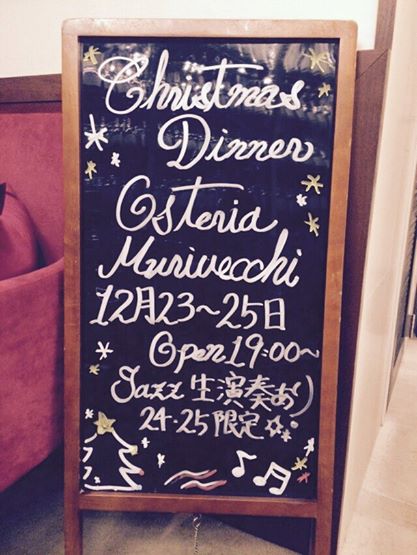 Christmas
Dinner
Osteria
Murivecchi
12月23~25日
Open 19:00~
Jazz 生演奏あり
24.25限定